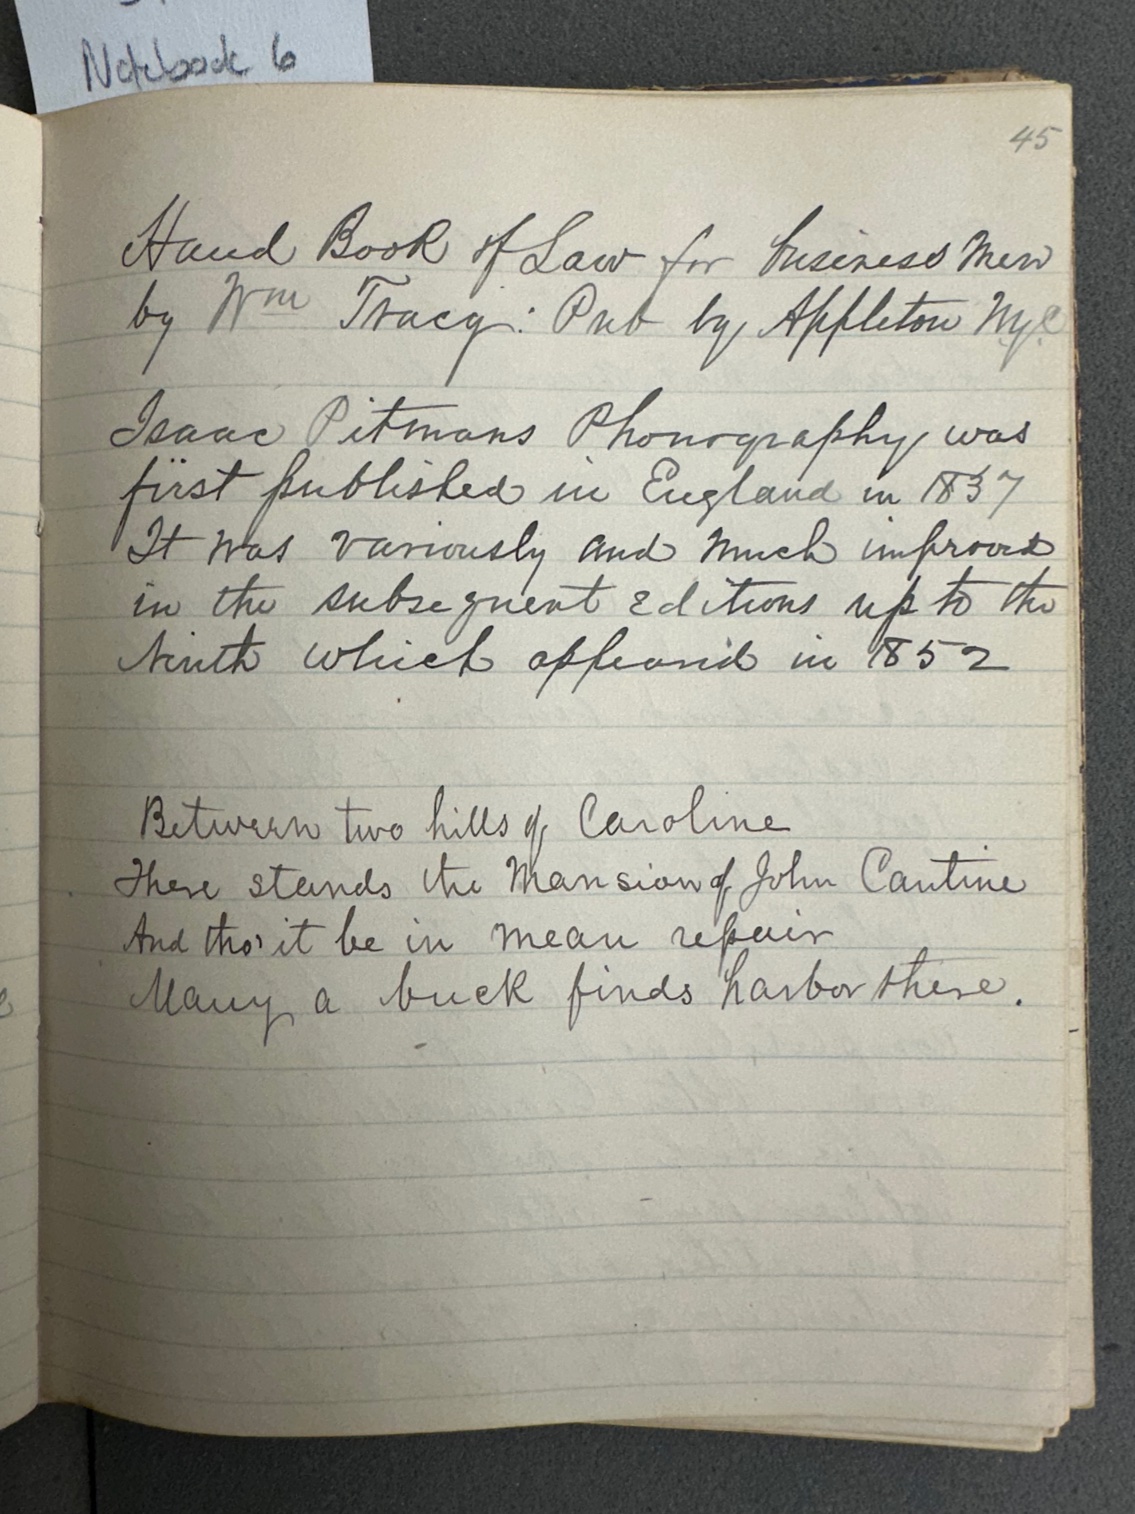 Notebook 6
45
Hand Book of Law for business Men
by Wm Tracy: Pub by Appleton N.Y.C
Isaac Pitmans Phonography was
first published in England in 1837
It was variously and much improved
in the subsequent Editions up to the
Ninth which appeared in 1852
Between two hills of Caroline
There stands the Mansion of John Cantine
And tho' it be in mean repair
Many a buck finds harbor there.